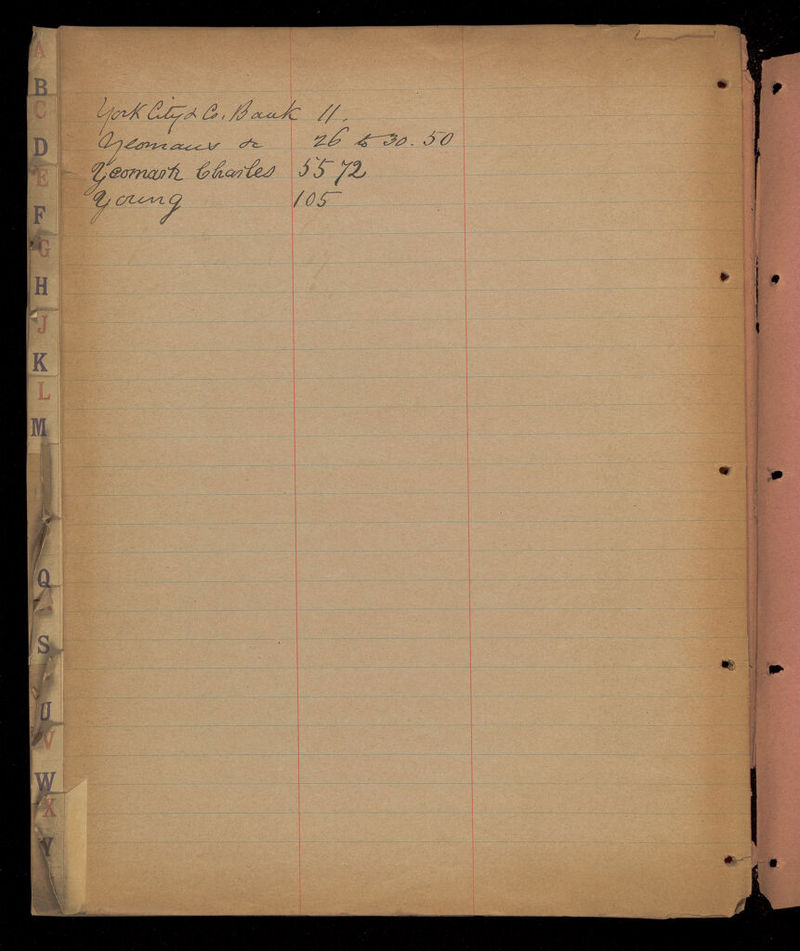 A
B
C
D
E
F
G
H
J
K
L
M
Q
S
U
V
W
X
Y
York City & Co. Bank 11.
Yeomans 26 to 30. 50
Yeomash Charles 55 72
Young 105